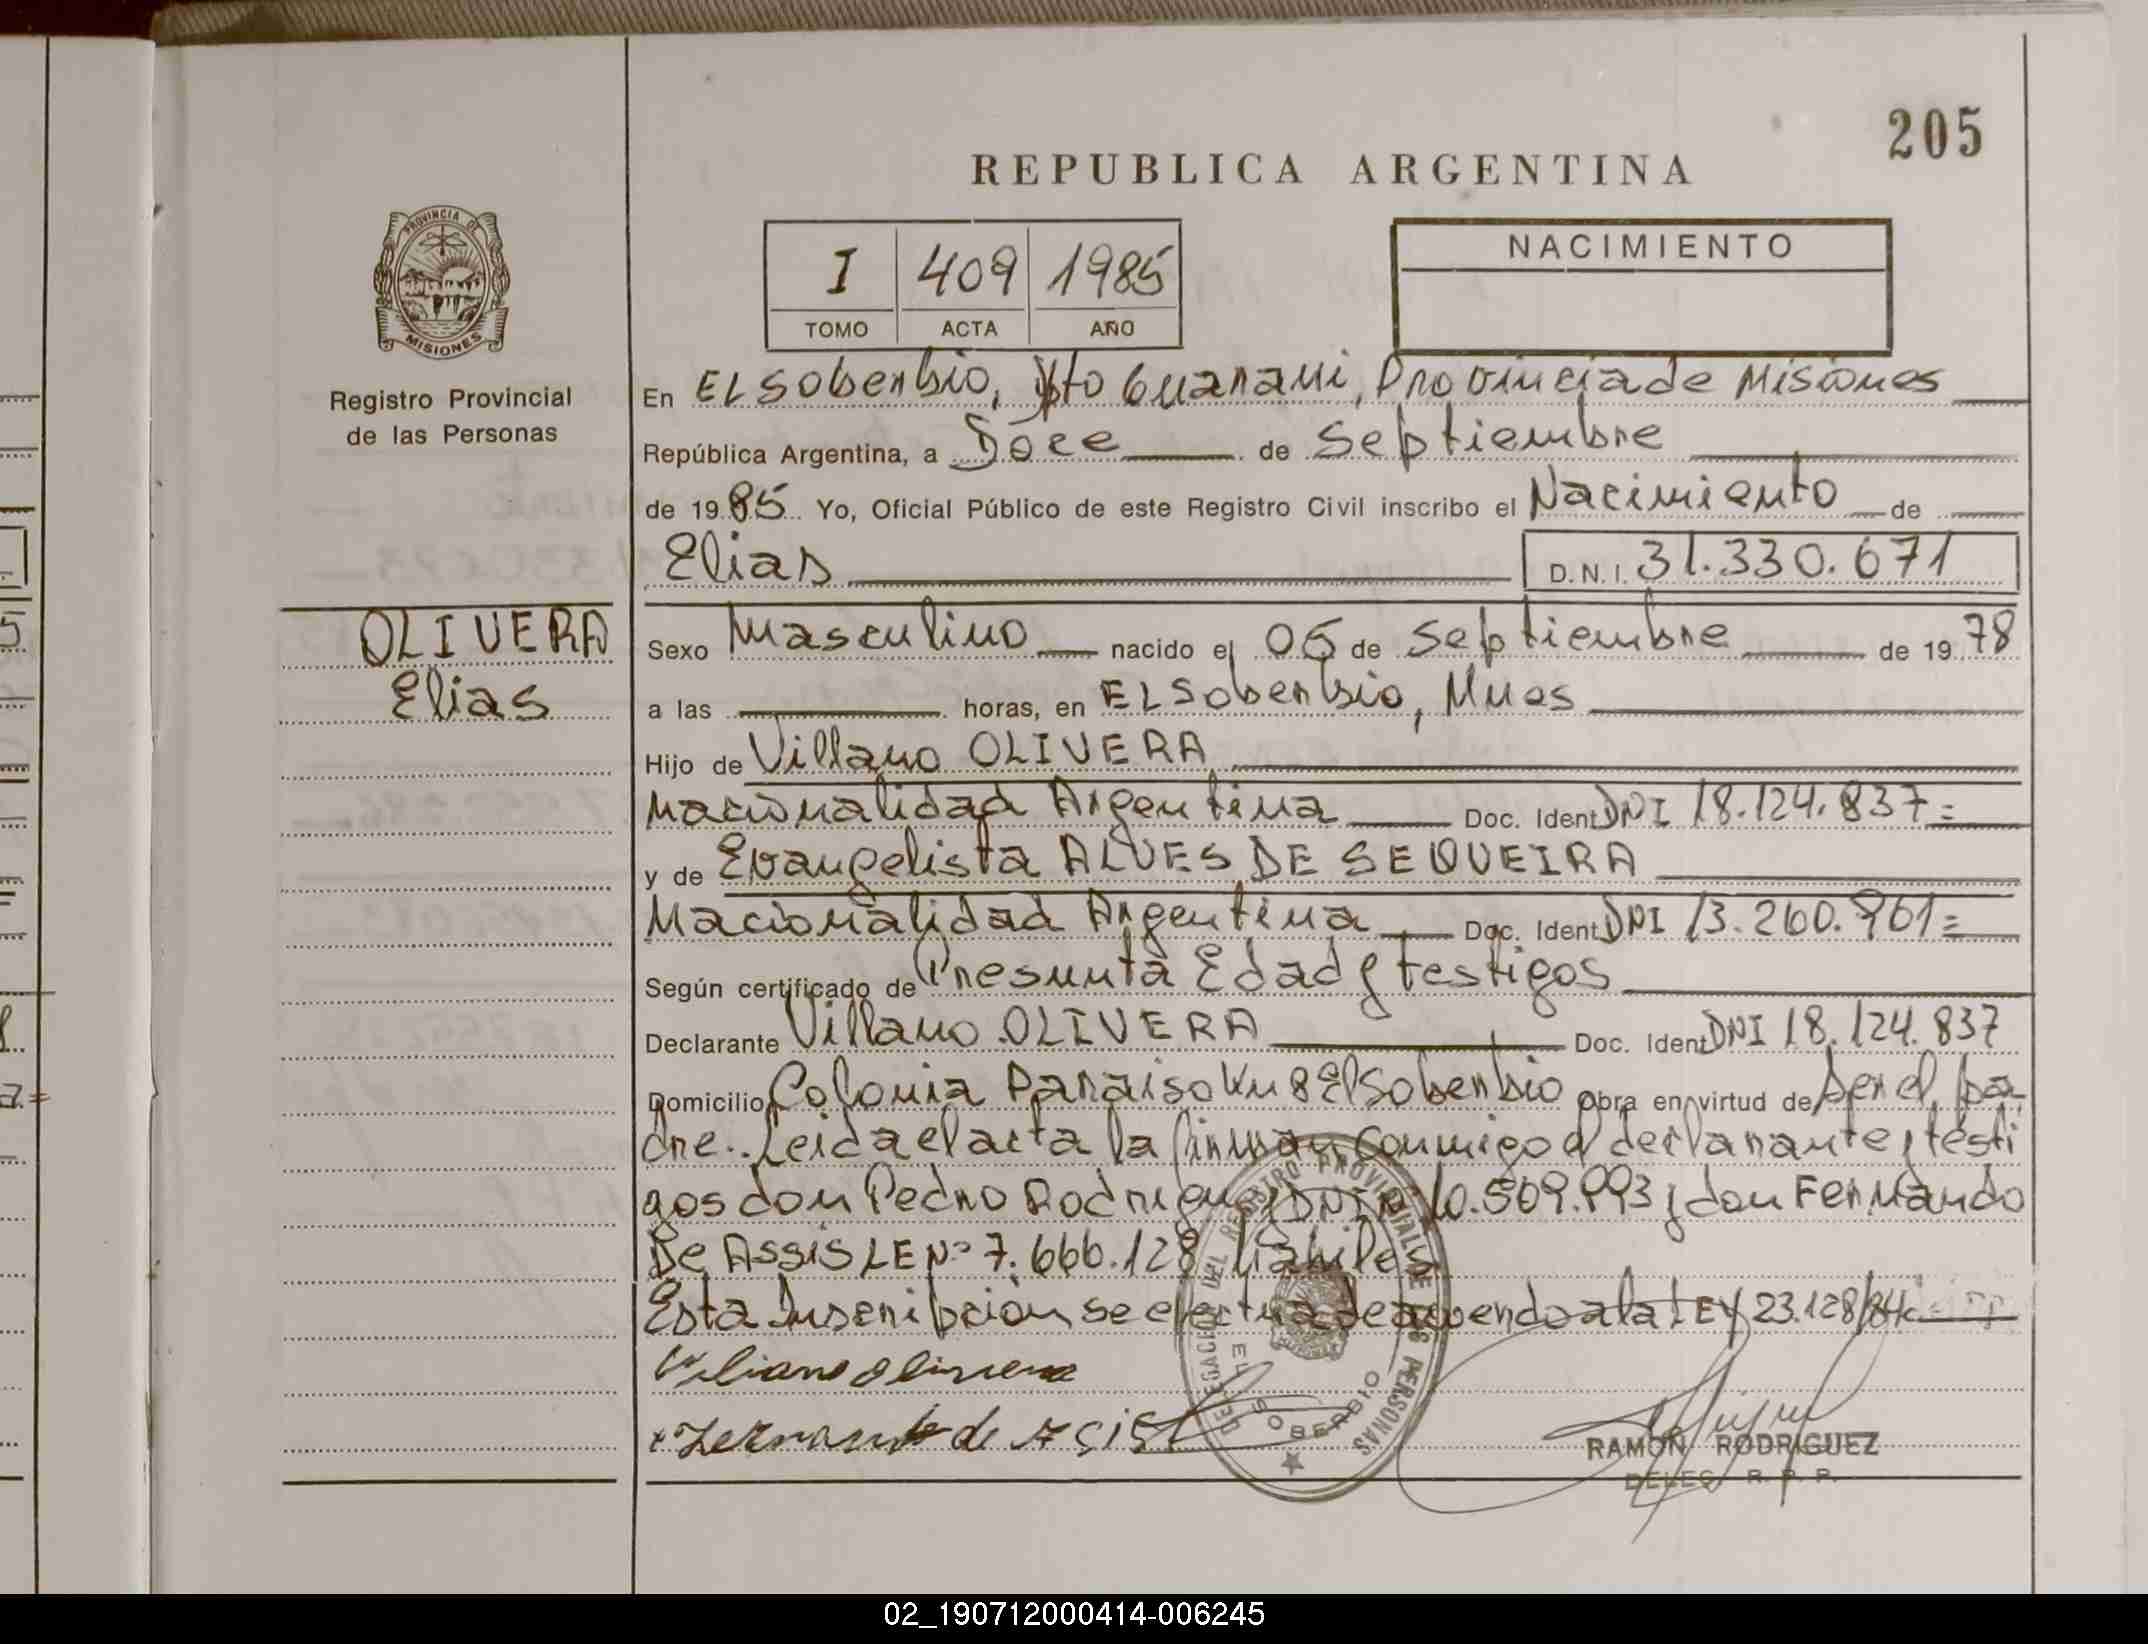 205
REPUBLICA ARGENTINA
PROVINCIA DE
MISIONES
Registro Provincial
de las Personas
I 409 1985
TOMO ACTA AÑO
NACIMIENTO
En EL Soberbio, Dto Guarani, Provincia de Misiones
República Argentina, a Doce de Septiembre
de 1985 Yo, Oficial Público de este Registro Civil inscribo el Nacimiento de
Elias D.N.I. 31.330.671
OLIVERA
Elias
Sexo Masculino nacido el 06 de Septiembre de 1978
a las horas, en EL Soberbio, Mnes
Hijo de Villano OLIVERA
Nacionalidad Argentina Doc. Ident DNI 18.124.837=
y de Evangelista ALVES DE SEQUEIRA
Nacionalidad Argentina Doc. Ident DNI 13.260.961=
Según certificado de Presunta Edad y testigos
Declarante Villano OLIVERA Doc. Ident DNI 18.124.837
Domicilio Colonia Paraiso Km 8 El Soberbio Obra en virtud de ser el pa
dre.. Leida el acta la firman conmigo el declarante y testi
gos don Pedro Rodriguez DNI Nº 10.509.993 y don Fernando
De Assis LE Nº 7.666.128 Habiles
Esta Inscripcion se efectua de acuerdo a la LEY 23.128/84
Viliano Olivera
Fernando de Asist
DELEGACION DEL REGISTRO PROVINCIAL DE LAS PERSONAS
EL SOBERBIO
RAMON RODRIGUEZ
DELEG. R. P. P.
02_190712000414-006245